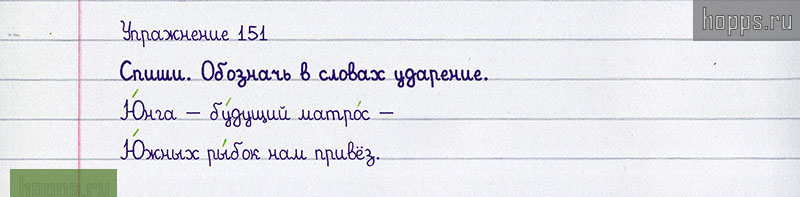 hopps.ru
Упражнение 151
Спиши. Обозначь в словах ударение.
Ю́нга – бу́дущий матро́с –
Ю́жных ры́бок нам привёз.
hopps.ru